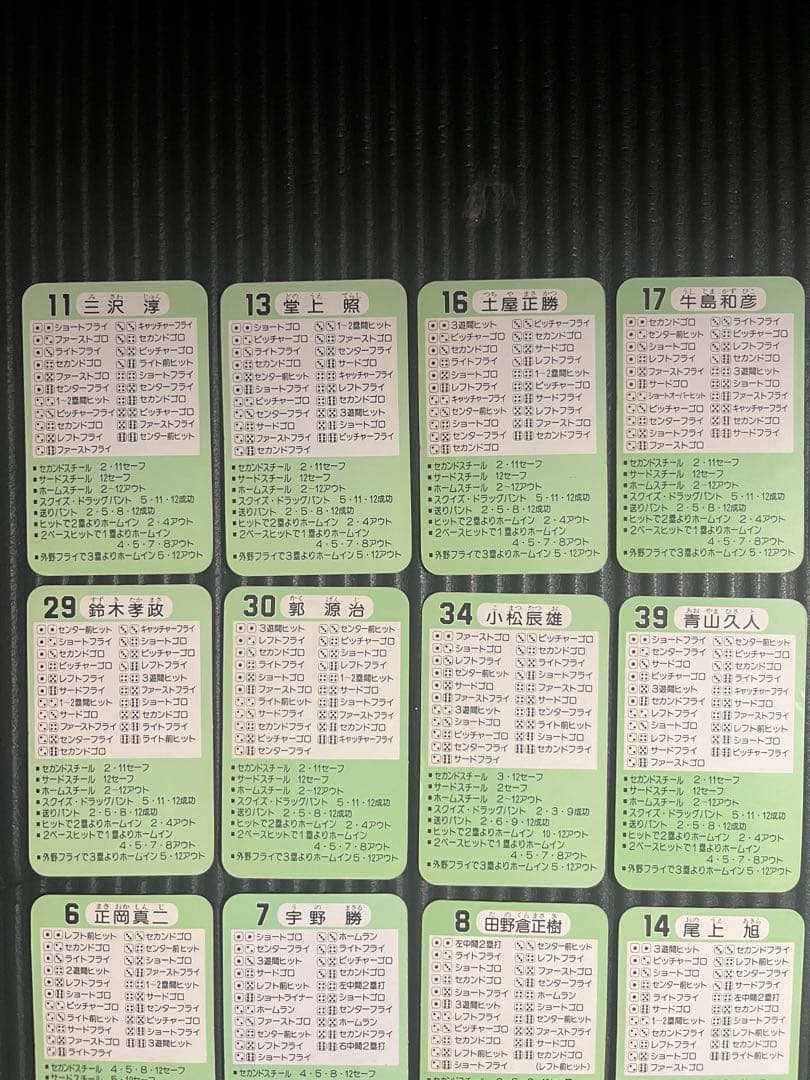 11 三沢 淳
ショートフライ キャッチャーフライ
ファーストゴロ セカンドゴロ
ライトフライ ピッチャーゴロ
セカンドゴロ ライト前ヒット
ファーストゴロ ショートフライ
センターフライ センターフライ
1~2塁間ヒット セカンドゴロ
ピッチャーフライ ピッチャーゴロ
セカンドゴロ ファーストフライ
レフトフライ センター前ヒット
ファーストフライ
■セカンドスチール 2・11セーフ
■サードスチール 12セーフ
■ホームスチール 2~12アウト
■スクイズ・ドラッグバント 5・11・12成功
■送りバント 2・5・8・12成功
■ヒットで2塁よりホームイン 2・4アウト
■2ベースヒットで1塁よりホームイン
4・5・7・8アウト
■外野フライで3塁よりホームイン 5・12アウト
13 堂上 照
ショートゴロ 1~2塁間ヒット
ピッチャーゴロ ファーストゴロ
ライトフライ センターフライ
セカンドゴロ サードゴロ
センター前ヒット キャッチャーゴロ
ショートフライ レフトフライ
ピッチャーゴロ セカンドゴロ
センターフライ 3遊間ヒット
サードゴロ ショートゴロ
ファーストフライ ピッチャーフライ
セカンドフライ
■セカンドスチール 2・11セーフ
■サードスチール 12セーフ
■ホームスチール 2~12アウト
■スクイズ・ドラッグバント 5・11・12成功
■送りバント 2・5・8・12成功
■ヒットで2塁よりホームイン 2・4アウト
■2ベースヒットで1塁よりホームイン
4・5・7・8アウト
■外野フライで3塁よりホームイン 5・12アウト
16 土屋正勝
3遊間ヒット ピッチャーフライ
ピッチャーゴロ サードゴロ
セカンドゴロ センターフライ
ライトフライ レフトフライ
ショートゴロ 1~2塁間ヒット
レフトフライ ピッチャーゴロ
キャッチャーフライ セカンドゴロ
センター前ヒット レフトフライ
ショートゴロ ファーストゴロ
センターフライ セカンドフライ
セカンドゴロ
■セカンドスチール 2・11セーフ
■サードスチール 12セーフ
■ホームスチール 2~12アウト
■スクイズ・ドラッグバント 5・11・12成功
■送りバント 2・5・8・12成功
■ヒットで2塁よりホームイン 2・4アウト
■2ベースヒットで1塁よりホームイン
4・5・7・8アウト
■外野フライで3塁よりホームイン 5・12アウト
17 牛島和彦
セカンドゴロ ライトフライ
センター前ヒット ピッチャーゴロ
ショートゴロ ショートゴロ
レフトフライ セカンドフライ
ファーストフライ 3遊間ヒット
サードゴロ ショートゴロ
ショートオーバーヒット ファーストゴロ
ピッチャーゴロ キャッチャーフライ
セカンドゴロ センターフライ
ショートフライ ライトフライ
ファーストゴロ
■セカンドスチール 2・11セーフ
■サードスチール 12セーフ
■ホームスチール 2~12アウト
■スクイズ・ドラッグバント 5・11・12成功
■送りバント 2・5・8・12成功
■ヒットで2塁よりホームイン 2・4アウト
■2ベースヒットで1塁よりホームイン
4・5・7・8アウト
■外野フライで3塁よりホームイン 5・12アウト
29 鈴木孝政
センター前ヒット キャッチャーフライ
ショートフライ ショートゴロ
セカンドゴロ ピッチャーゴロ
ピッチャーゴロ レフトフライ
レフトフライ 3遊間ヒット
サードフライ ファーストフライ
1~2塁間ヒット ショートゴロ
サードゴロ セカンドゴロ
ファーストゴロ ライトフライ
センターフライ ライト前ヒット
セカンドゴロ
■セカンドスチール 2・11セーフ
■サードスチール 12セーフ
■ホームスチール 2~12アウト
■スクイズ・ドラッグバント 5・11・12成功
■送りバント 2・5・8・12成功
■ヒットで2塁よりホームイン 2・4アウト
■2ベースヒットで1塁よりホームイン
4・5・7・8アウト
■外野フライで3塁よりホームイン 5・12アウト
30 郭 源治
3遊間ヒット センター前ヒット
レフトフライ ピッチャーゴロ
セカンドゴロ センターフライ
ライトフライ セカンドゴロ
ショートゴロ 1~2塁間ヒット
ファーストゴロ レフトフライ
ライト前ヒット ショートゴロ
サードフライ ファーストフライ
セカンドフライ セカンドゴロ
ピッチャーゴロ キャッチャーフライ
センターフライ
■セカンドスチール 2・11セーフ
■サードスチール 12セーフ
■ホームスチール 2~12アウト
■スクイズ・ドラッグバント 5・11・12成功
■送りバント 2・5・8・12成功
■ヒットで2塁よりホームイン 2・4アウト
■2ベースヒットで1塁よりホームイン
4・5・7・8アウト
■外野フライで3塁よりホームイン 5・12アウト
34 小松辰雄
ファーストゴロ ピッチャーゴロ
ショートゴロ センターフライ
レフトフライ ライトフライ
センター前ヒット ショートゴロ
サードゴロ セカンドゴロ
ファーストフライ ファーストゴロ
3遊間ヒット ショートフライ
ショートゴロ ライト前ヒット
ピッチャーゴロ ショートゴロ
センターフライ セカンドフライ
サードフライ
■セカンドスチール 3・12セーフ
■サードスチール 2セーフ
■ホームスチール 2~12アウト
■スクイズ・ドラッグバント 2・3・9成功
■送りバント 2・6・9・12成功
■ヒットで2塁よりホームイン 10・12アウト
■2ベースヒットで1塁よりホームイン
4・5・7・8アウト
■外野フライで3塁よりホームイン 5・12アウト
39 青山久人
ショートフライ センター前ヒット
センターフライ ピッチャーゴロ
サードゴロ セカンドゴロ
ピッチャーゴロ ライトフライ
3遊間ヒット キャッチャーフライ
セカンドフライ ショートゴロ
レフトフライ ファーストフライ
ショートゴロ レフト前ヒット
レフトフライ ショートゴロ
サードフライ ピッチャーフライ
ファーストゴロ
■セカンドスチール 2・11セーフ
■サードスチール 12セーフ
■ホームスチール 2~12アウト
■スクイズ・ドラッグバント 5・11・12成功
■送りバント 2・5・8・12成功
■ヒットで2塁よりホームイン 2・4アウト
■2ベースヒットで1塁よりホームイン
4・5・7・8アウト
■外野フライで3塁よりホームイン 5・12アウト
6 正岡真二
レフト前ヒット セカンドゴロ
セカンドゴロ センター前ヒット
ライトフライ ショートゴロ
2遊間ヒット ファーストフライ
レフトフライ 1~2塁間ヒット
ショートゴロ サードゴロ
ピッチャーゴロ センターフライ
ライト前ヒット レフトフライ
サードフライ ショートフライ
ファーストゴロ 3遊間ヒット
ライトフライ
■セカンドスチール 4・5・8・12セーフ
7 宇野 勝
ショートゴロ ホームラン
センターフライ ライトフライ
3遊間ヒット ピッチャーゴロ
サードゴロ セカンドゴロ
レフト前ヒット 左中間2塁打
ショートライナー ショートゴロ
ホームラン センターフライ
ファーストゴロ ホームラン
センター前ヒット レフトフライ
レフトゴロ 右中間2塁打
ショートフライ
■セカンドスチール 4・5・8・12セーフ
8 田野倉正樹
左中間2塁打 センター前ヒット
ライトフライ ショートゴロ
ショートゴロ ファーストゴロ
セカンドゴロ センターフライ
ショートフライ ホームラン
3遊間ヒット ショートゴロ
レフトフライ セカンドゴロ
ピッチャーゴロ ファーストフライ
サードゴロ センターフライ
レフト前ヒット セカンドゴロ
ショートフライ (レフト前ヒット)
14 尾上 旭
3遊間ヒット セカンドフライ
ピッチャーゴロ レフトフライ
ショートゴロ センターフライ
センター前ヒット サードゴロ
ライトフライ 左中間2塁打
サードゴロ ショートゴロ
1~2塁間ヒット ショートフライ
セカンドフライ レフト前ヒット
レフトフライ ピッチャーゴロ
ショートゴロ ライトフライ
ファーストフライ